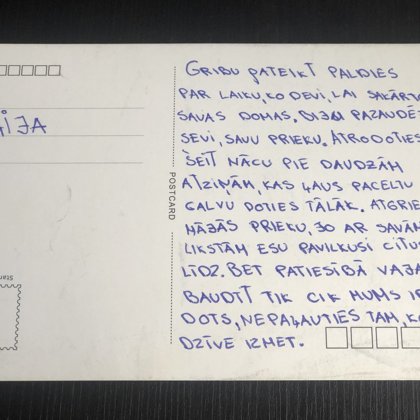 GRIBU PATEIKT PALDIES
PAR LAIKU, KO DEVI, LAI SAKĀRTO
SAVAS DOMAS. BIJU PAZAUDĒ
SEVI, SAVU PRIEKU. ATRODOTIES
ŠEIT NĀCU PIE DAUDZĀM
ATZIŅĀM, KAS ĻAUS PACELTU
GALVU DOTIES TĀLĀK. ATGRIE
MĀJĀS PRIEKU, JO AR SAVĀM
LIKSTĀM ESU PAVILKUSI CITUS
LĪDZ. BET PATIESĪBĀ VAJA
BAUDĪT TIK CIK MUMS IR
DOTS, NEPAĻAUTIES TAM, KO
DZĪVE IZMET.
POSTCARD